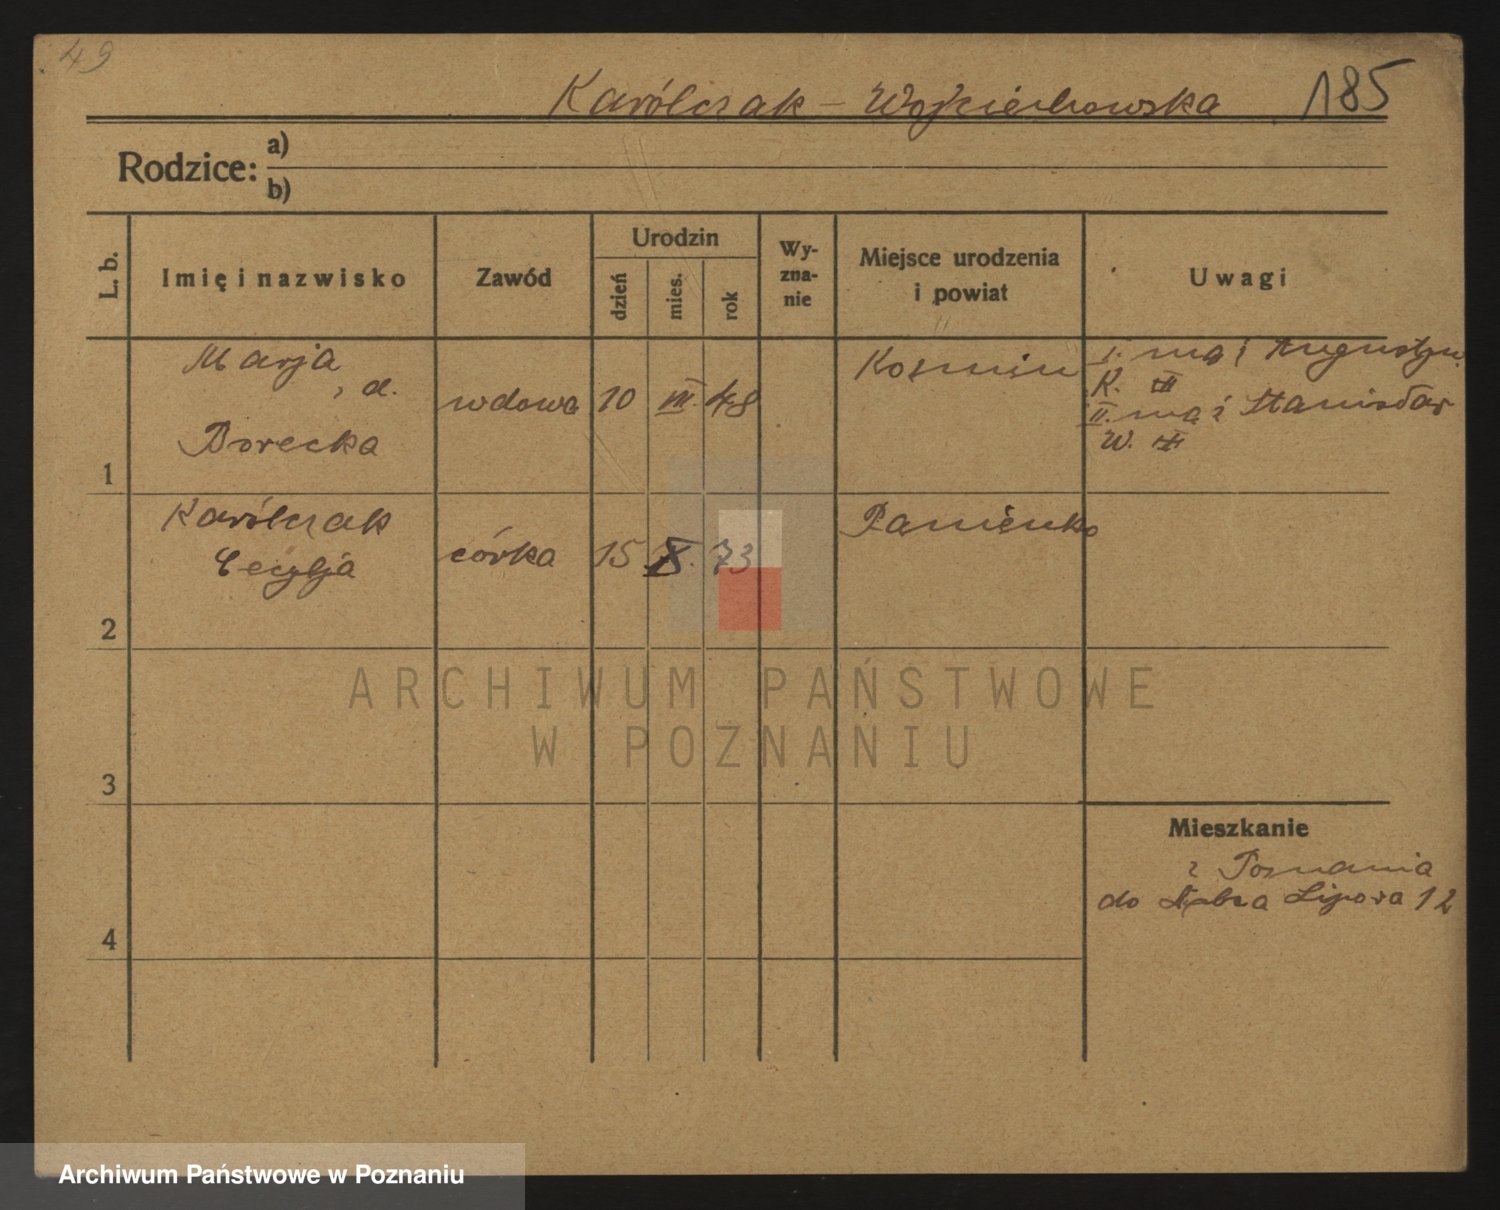 49
Karólczak – Wojciechowska 185
Rodzice: a)
b)
L. b.
Imię i nazwisko
Zawód
Urodzin
dzień
mies.
rok
Wy-
zna-
nie
Miejsce urodzenia
i powiat
Uwagi
1
Marja
, d.
Borecka
wdowa
10
III.
48
Kosmin
I. mąż Augustyn
K.
II. mąż Stanisław
W.
2
Karólczak
Cecylja
córka
15
X.
73
Panienko
3
4
Mieszkanie
z Poznania
do Lipowa 12
ARCHIWUM PAŃSTWOWE
W POZNANIU
Archiwum Państwowe w Poznaniu